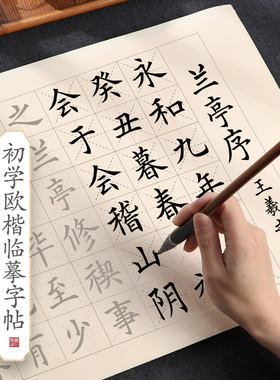 兰亭序
王羲
永和九年
癸丑暮春
会于会稽山阴
之兰亭修禊事
至少
有
初学欧楷临摹字帖